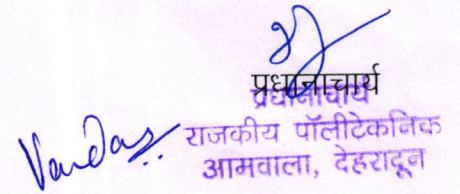 प्रधानाचार्य
प्रधानाचार्य
राजकीय पॉलीटेकनिक
आमवाला, देहरादून